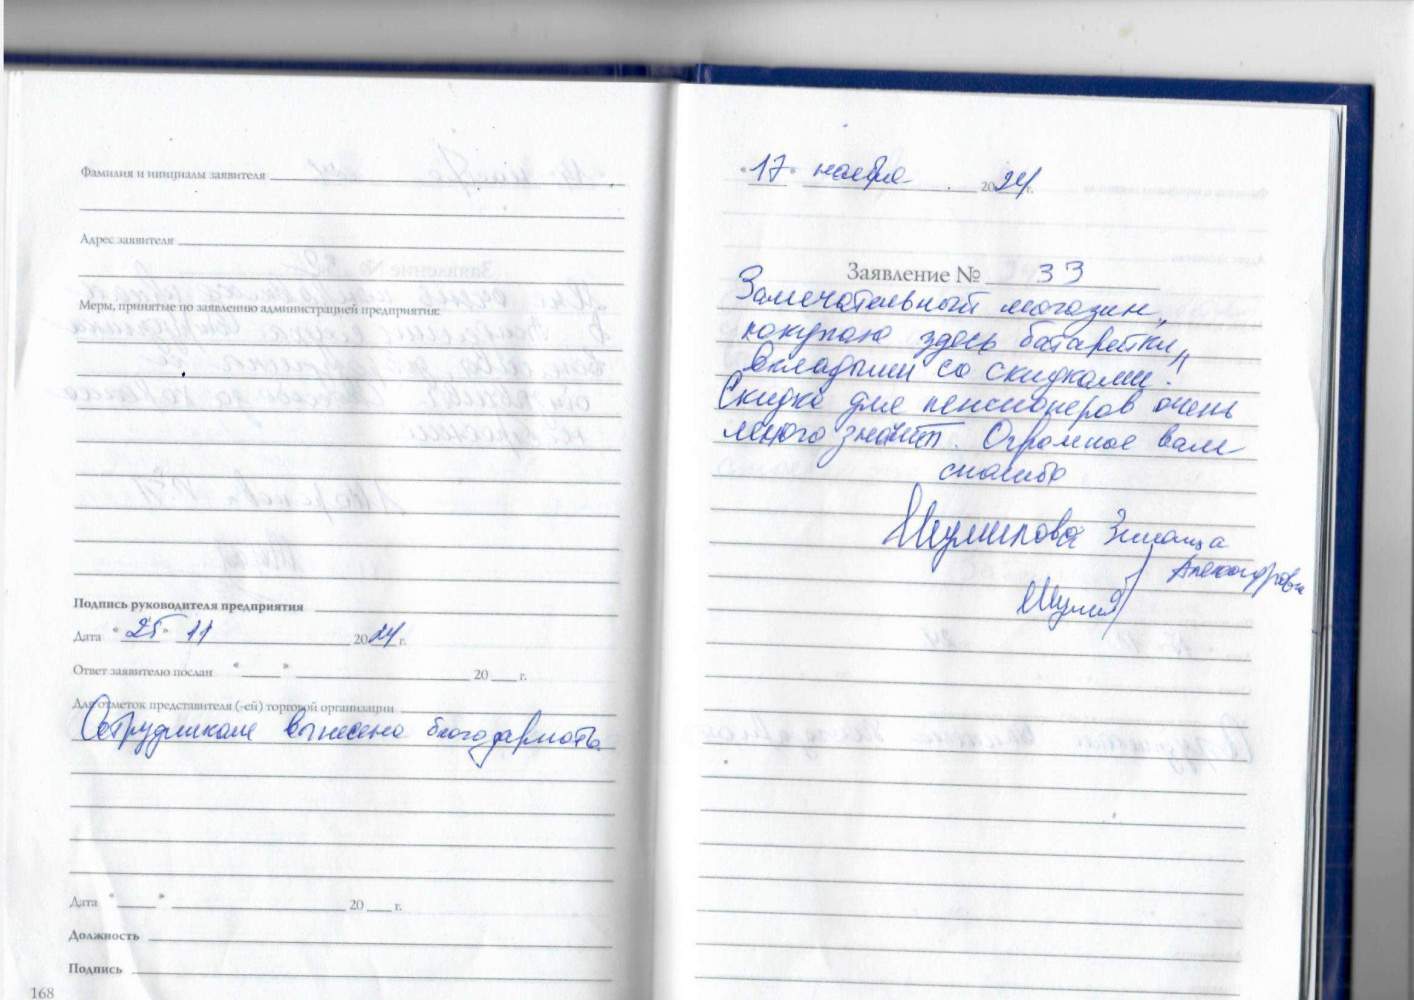 Фамилия и инициалы заявителя
Адрес заявителя
Меры, принятые по заявлению администрацией предприятия:
Подпись руководителя предприятия
Дата "25" 11 2024 г.
Ответ заявителю послан " " 20 г.
Для отметок представителя (-ей) торговой организации
Сотрудникам вынесена благодарность
Дата " " 20 г.
Должность
Подпись
168
"17" ноября 2024 г.
Заявление № 33
Замечательный магазин,
покупаю здесь батарейки,
вкладыши со скидками.
Скидка для пенсионеров очень
много значит. Огромное вам
спасибо
Шумилова Зинаида
Александровна